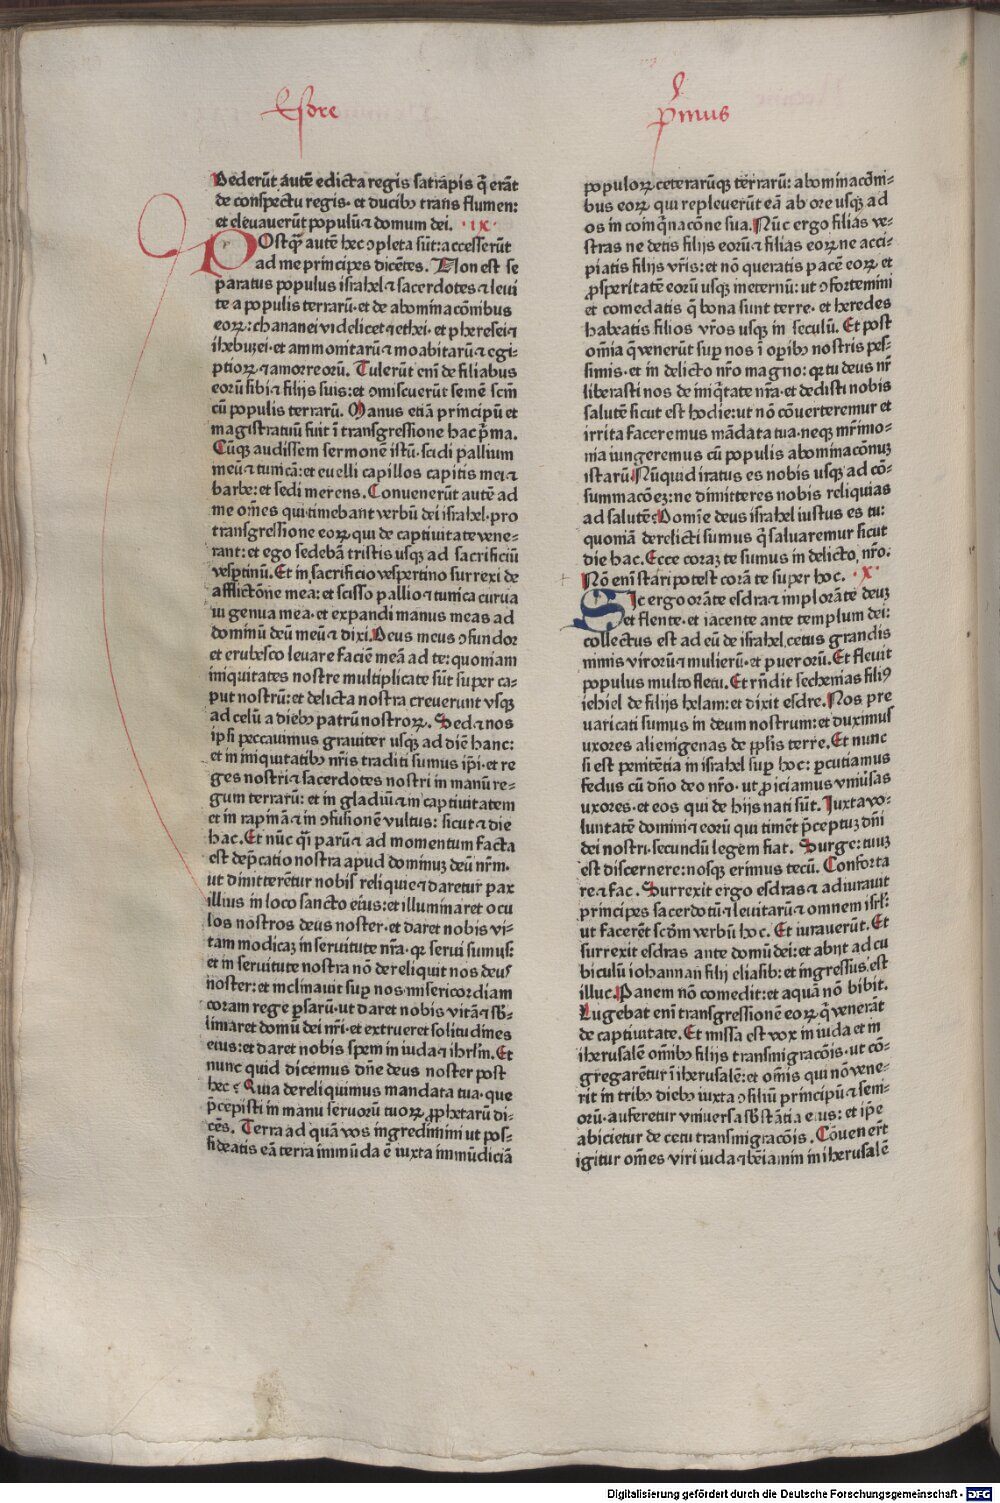 Esdre
p̄mus
Dederūt autē edicta regis satrapis q̄ erāt
de conspectu regis· et ducibꝰ trans flumen:
et elevaverūt populū ⁊ domum dei. ·ix·
POstqᷓ autē hec ↄpleta sūt: accesserūt
ad me principes dicētes. Non est se
paratus populus israhel ⁊ sacerdotes ⁊ levi
te a populis terrarū· et de abominacōnibus
eoꝝ: chananei videlicet ⁊ ethei· et pheresei ⁊
ihebuzei· et ammonitarū ⁊ moabitarū ⁊ egi-
ptioꝝ ⁊ amorreorū. Tulerūt enī de filiabus
eorū sibi ⁊ filijs suis: et ↄmiscuerūt semē scm̄
cū populis terrarū. Manus etiā principū et
magistratuū fuit ī transgressione hac p̄ma.
Cūqꝫ audissem sermonē istū· scidi pallium
meū ⁊ tunicā: et evelli capillos capitis mei ⁊
barbe: et sedi merens. Convenerūt autē ad
me om̄es qui timebant verbū dei israhel· pro
transgressione eoꝝ qui de captivitate vene-
rant: et ego sedebā tristis usqꝫ ad sacrificiū
vesptinū. Et in sacrificio vespertino surrexi de
afflictōne mea: et scisso pallio ⁊ tunica curva
vi genua mea· et expandi manus meas ad
dominū deū meū ⁊ dixi. Deus meus ↄfundor
et erubesco levare faciē meā ad te: quoniam
iniquitates nostre multiplicate sūt super ca-
put nostrū: et delicta nostra creverunt vsqꝫ
ad celū a diebꝰ patrū nostroꝝ. Sed ⁊ nos
ipsi peccavimus graviter usqꝫ ad diē hanc:
et in iniquitatibꝰ nr̄is traditi sumus ip̄i· et re
ges nostri ⁊ sacerdotes nostri in manū re-
gum terrarū: et in gladiū ⁊ in captivitatem
et in rapinā ⁊ in ↄfusionē vultus: sicut ⁊ die
hac. Et nūc q̄si parū ⁊ ad momentum facta
est dep̄catio nostra apud dominuꝫ deū nr̄m·
ut dimitterētur nobis reliquie ⁊ daretur pax
illius in loco sancto eius: et illuminaret ocu
los nostros deus noster· et daret nobis vi-
tam modicaꝫ in servitute nr̄a· qꝛ servi sumus:
et in servitute nostra nō dereliquit nos deus
noster: et inclinavit sup̄ nos misericordiam
coram rege p̱sarū· ut daret nobis vitā ⁊ sb̄-
limaret domū dei nr̄i· et extrueret solitudines
eius: et daret nobis spem in iuda ⁊ ihrl̄m. Et
nunc quid dicemus dn̄e deus noster post
hec ? Quia dereliquimus mandata tua· que
p̄cepisti in manu servorū tuoꝝ ꝓphetarū di-
cēs. Terra ad quā vos ingredimini ut pos-
sideatis eā terra immūda ē iuxta immūdiciā
populoꝝ ceterarūqꝫ terrarū: abominacōni-
bus eoꝝ qui repleverūt eā ab ore usqꝫ ad
os in coinq̄nacōne sua. Nūc ergo filias ve-
stras ne detis filijs eorū ⁊ filias eoꝝ ne acci-
piatis filijs vr̄is: et nō queratis pacē eoꝝ et
ꝓsperitatē eorū usqꝫ in eternū: ut ↄfortemini
et comedatis q̄ bona sunt terre· et heredes
habeatis filios vr̄os usqꝫ in seculū. Et post
om̄ia q̄ venerūt sup̄ nos ī opibꝰ nostris pes-
simis· et in delicto nr̄o magno: qꝛ tu deus nr̄
liberasti nos de iniq̄tate nr̄a· et dedisti nobis
salutē sicut est hodie: ut nō cōverteremur et
irrita faceremus mādata tua· neqꝫ mr̄imo-
nia iungeremus cū populis abominacōnuꝫ
istarū. Nūquid iratus es nobis usqꝫ ad cō-
summacōeꝫ: ne dimitteres nobis reliquias
ad salutē? Domīe deus israhel iustus es tu:
quoniā derelicti sumus q̄ salvaremur sicut
die hac. Ecce coraꝫ te sumus in delicto nr̄o.
Nō enī stari potest corā te super hoc. ·x·
SIc ergo orāte esdra ⁊ implorāte deuꝫ
et flente· et iacente ante templum dei:
collectus est ad eū de israhel cetus grandis
nimis virorū ⁊ mulierū· et puerorū. Et flevit
populus multo fletu. Et rn̄dit sechenias filiꝰ
iehiel de filijs helam: et dixit esdre. Nos pre
varicati sumus in deum nostrum: et duximus
uxores alienigenas de pp̱lis terre. Et nunc
si est penitētia in israhel sup̄ hoc: p̱cutiamus
fedus cū dn̄o deo nr̄o· ut ꝓiciamus vniv̄sas
uxores· et eos qui de hijs nati sūt. Iuxta vo-
luntatē domini ⁊ eorū qui timēt p̄ceptuꝫ dn̄i
dei nostri· secundū legem fiat. Surge: tuuꝫ
est discernere: nosqꝫ erimus tecū. Conforta
re ⁊ fac. Surrexit ergo esdras ⁊ adiuravit
principes sacerdotū ⁊ levitarū ⁊ omnem isrl̄:
ut facerēt scd̄m verbū hoc. Et iuraverūt. Et
surrexit esdras ante domū dei: et abijt ad cu
biculū iohannan filij eliasib: et ingressus est
illuc. Panem nō comedit: et aquā nō bibit.
Lugebat enī transgressionē eoꝝ q̄ venerāt
de captivitate. Et missa est vox in iuda et in
iherusalē om̄ibꝰ filijs transmigracōis· ut cō-
gregarētur ī iherusalē: et om̄is qui nō vene-
rit in tribꝰ diebꝰ iuxta ↄsiliū principū ⁊ seni-
orū· auferetur vniversa sb̄stātia eius: et ip̄e
abicietur de cetu transmigracōis. Cōvenerūt
igitur om̄es viri iuda ⁊ bēiamin in iherusalē
Digitalisierung gefördert durch die Deutsche Forschungsgemeinschaft - DFG